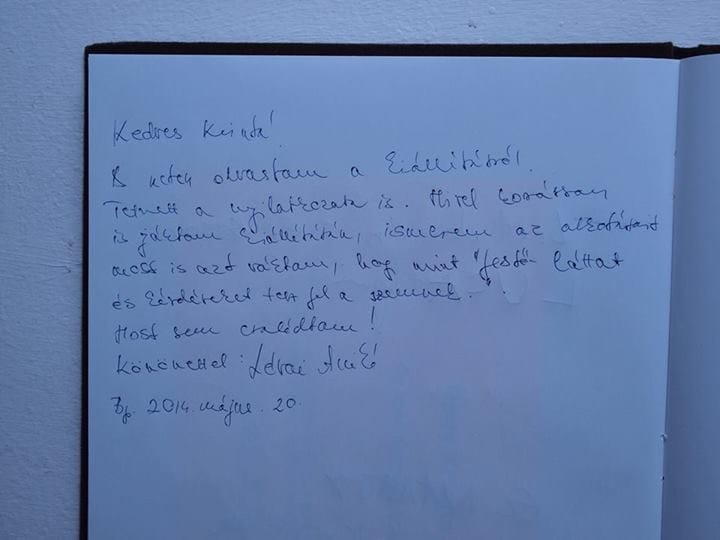 Kedves Kinda!
A neten olvastam a kiállításról.
Tetszett a nyilatkozata is. Mivel korábban
is jártam kiállításán, ismerem az alkotásait
most is azt vártam, hogy mint "festő" láttat
és kérdéseket tesz fel a szemnek.".
Most sem csalódtam!
Köszönettel: Lévai
Bp. 2014. május. 20.